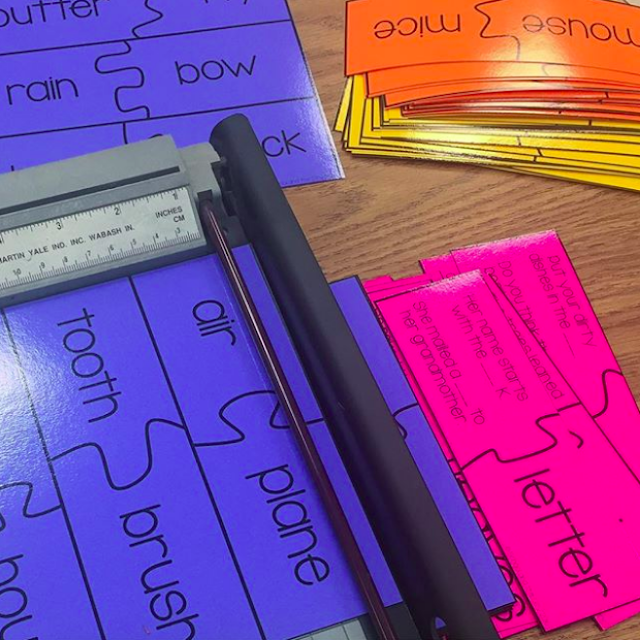 butter
rain bow
ck
mouse mice
INCHES
CM
3 2 1
MARTIN YALE IND. INC. WABASH IN.
tooth
brush
air
plane
hou
Put your dirty
dishes in the ___
Do you think
learned
Her name starts
with the ___ K.
She mailed a ___ to
her grandmother
letter